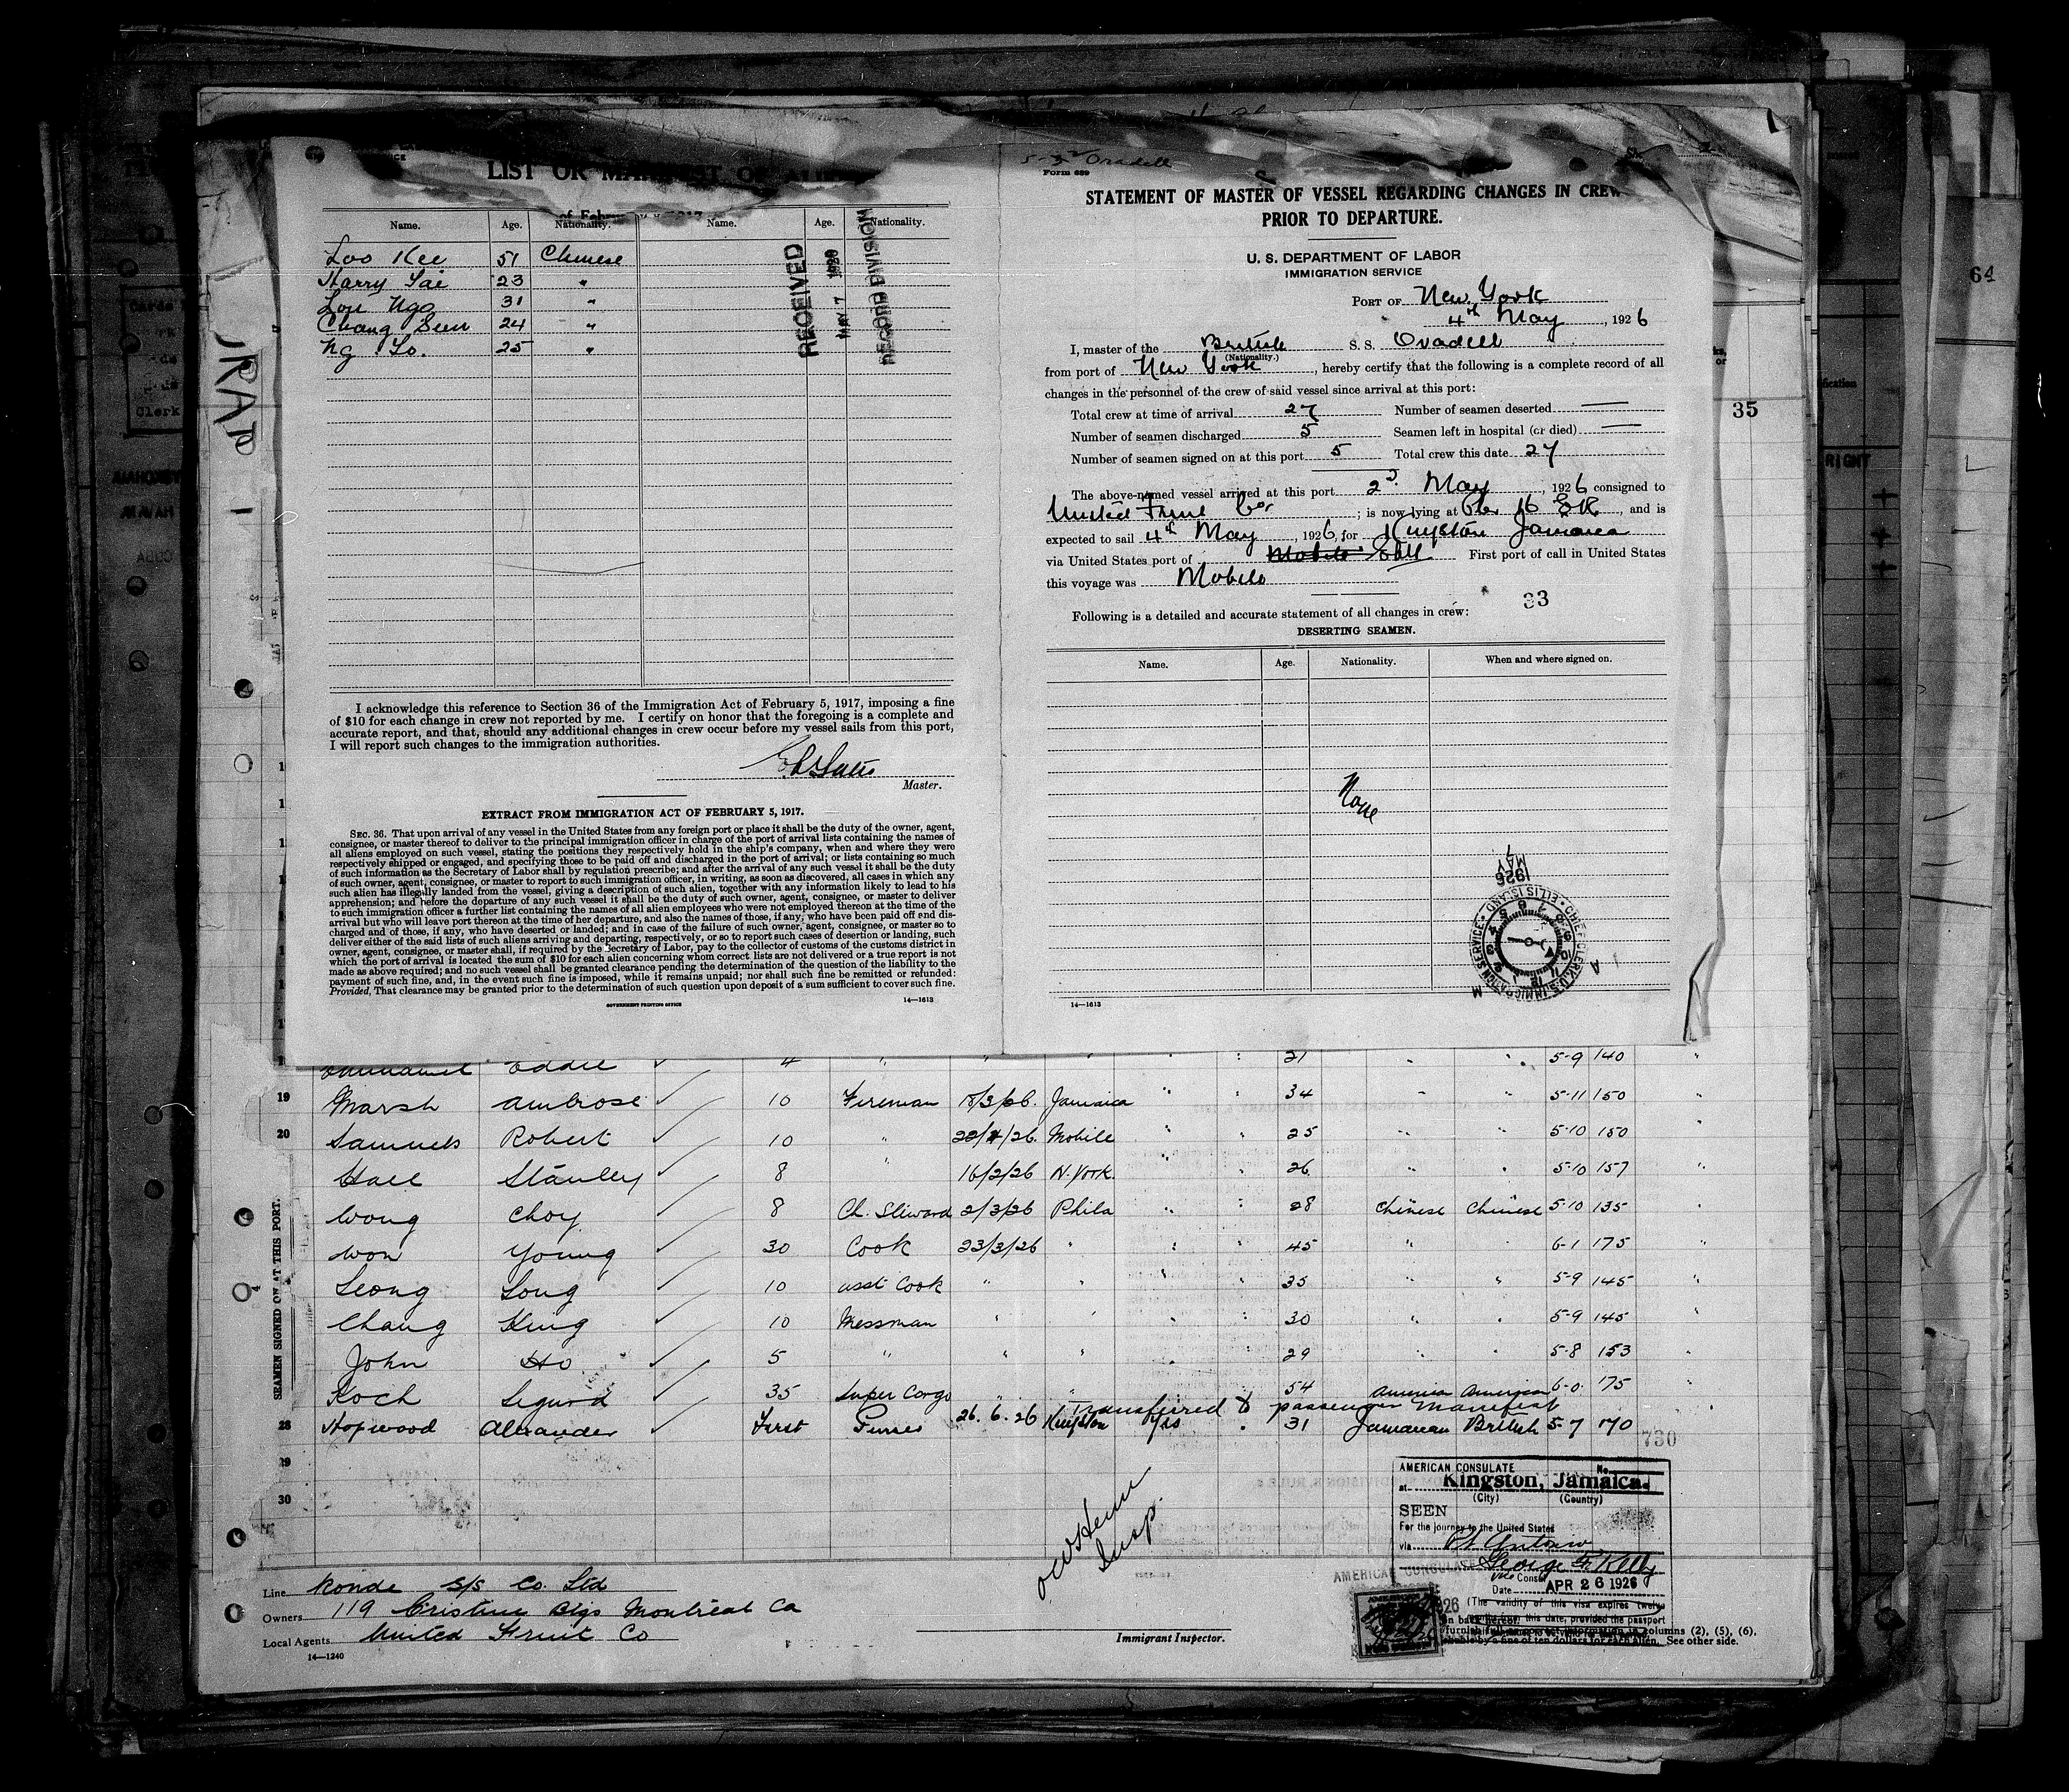 LIST OR MANIFEST OF ALIEN
of February 1917
Name. Age. Nationality. Name. Age. Nationality.
Loo Kee 51 Chinese
Harry Tai 23 "
Lou Ngo 31 "
Chang Sun 24 "
Ng Yo. 25 "
RECEIVED
MAY 7 1926
RECORD DIVISION
I acknowledge this reference to Section 36 of the Immigration Act of February 5, 1917, imposing a fine
of $10 for each change in crew not reported by me. I certify on honor that the foregoing is a complete and
accurate report, and that, should any additional changes in crew occur before my vessel sails from this port,
I will report such changes to the immigration authorities.
Master.
EXTRACT FROM IMMIGRATION ACT OF FEBRUARY 5, 1917.
SEC. 36. That upon arrival of any vessel in the United States from any foreign port or place it shall be the duty of the owner, agent,
consignee, or master thereof to deliver to the principal immigration officer in charge of the port of arrival lists containing the names of
all aliens employed on such vessel, stating the positions they respectively hold in the ship's company, when and where they were
respectively shipped or engaged, and specifying those to be paid off and discharged in the port of arrival; or lists containing so much
of such information as the Secretary of Labor shall by regulation prescribe; and after the arrival of any such vessel it shall be the duty
of such owner, agent, consignee, or master to report to such immigration officer, in writing, as soon as discovered, all cases in which any
such alien has illegally landed from the vessel, giving a description of such alien, together with any information likely to lead to his
apprehension; and before the departure of any such vessel it shall be the duty of such owner, agent, consignee, or master to deliver
to such immigration officer a further list containing the names of all alien employees who were not employed thereon at the time of the
arrival but who will leave port thereon at the time of her departure, and also the names of those, if any, who have been paid off and dis-
charged and of those, if any, who have deserted or landed; and in case of the failure of such owner, agent, consignee, or master so to
deliver either of the said lists of such aliens arriving and departing, respectively, or so to report such cases of desertion or landing, such
owner, agent, consignee, or master shall, if required by the Secretary of Labor, pay to the collector of customs of the customs district in
which the port of arrival is located the sum of $10 for each alien concerning whom correct lists are not delivered or a true report is not
made as above required; and no such vessel shall be granted clearance pending the determination of the question of the liability to the
payment of such fine, and, in the event such fine is imposed, while it remains unpaid; nor shall such fine be remitted or refunded:
Provided, That clearance may be granted prior to the determination of such question upon deposit of a sum sufficient to cover such fine.
GOVERNMENT PRINTING OFFICE 14—1613
Oradell
Form 689
STATEMENT OF MASTER OF VESSEL REGARDING CHANGES IN CREW
PRIOR TO DEPARTURE.
U. S. DEPARTMENT OF LABOR
IMMIGRATION SERVICE
PORT OF New York
4th May, 1926
I, master of the British S. S. Oradell
(Nationality.)
from port of New York, hereby certify that the following is a complete record of all
changes in the personnel of the crew of said vessel since arrival at this port:
Total crew at time of arrival 27 Number of seamen deserted —
Number of seamen discharged 5 Seamen left in hospital (or died) —
Number of seamen signed on at this port 5 Total crew this date 27
The above-named vessel arrived at this port 2d May, 1926 consigned to
United Fruit Co; is now lying at Pier 16 E R, and is
expected to sail 4th May, 1926, for Kingston Jamaica
via United States port of First port of call in United States
this voyage was Mobile
33
Following is a detailed and accurate statement of all changes in crew:
DESERTING SEAMEN.
Name. Age. Nationality. When and where signed on.
None
1926
MAY 7
CHIEF CLERK U.S. IMMIGRATION SERVICE • ELLIS ISLAND •
14—1613
64
35
RIGHT
Eddie 4 " " 21 " " 5-9 140 "
19 Marsh Ambrose 10 Fireman 15/3/26. Jamaica " " 34 " " 5-11 150 "
20 Samuels Robert 10 " 22/4/26. Mobile " " 25 " " 5-10 150 "
Hall Stanley 8 " 16/2/26 N. York. " " 26 " " 5-10 157 "
Wong Choy 8 Ch. Steward 2/3/26 Phila " " 28 Chinese Chinese 5-10 135 "
Won Young 30 Cook 23/3/26 " " " 45 " " 6-1 175 "
Leong Song 10 asst Cook " " " " 35 " " 5-9 145 "
Chang King 10 Messman " " " " 30 " " 5-9 145 "
John Ho 5 " " " " " 29 " " 5-8 153 "
Koch Sigurd 35 Super Cargo " " 54 America American 6-0 175 "
Transferred to passenger manifest
28 Hopwood Alexander First Purser 26.6.26 Kingston Yes " 31 Jamaican British 5-7 170
29
30
730
SEAMEN SIGNED ON AT THIS PORT.
Insp.
AMERICAN CONSULATE No.
at Kingston, Jamaica.
(City) (Country)
SEEN
For the journey to the United States
via Pt Antonio
George F. Kelly
Vice Consul
Date APR 26 1926
(The validity of this visa expires twelve
from this date, provided the passport
AMERICAN CONSULATE
columns (2), (5), (6).
by a fine of ten dollars for each alien. See other side.
Line Ronde S/S Co. Ltd
Owners 119 Cristine Blgs Montreal Ca
Local Agents United Fruit Co
Immigrant Inspector.
14—1240